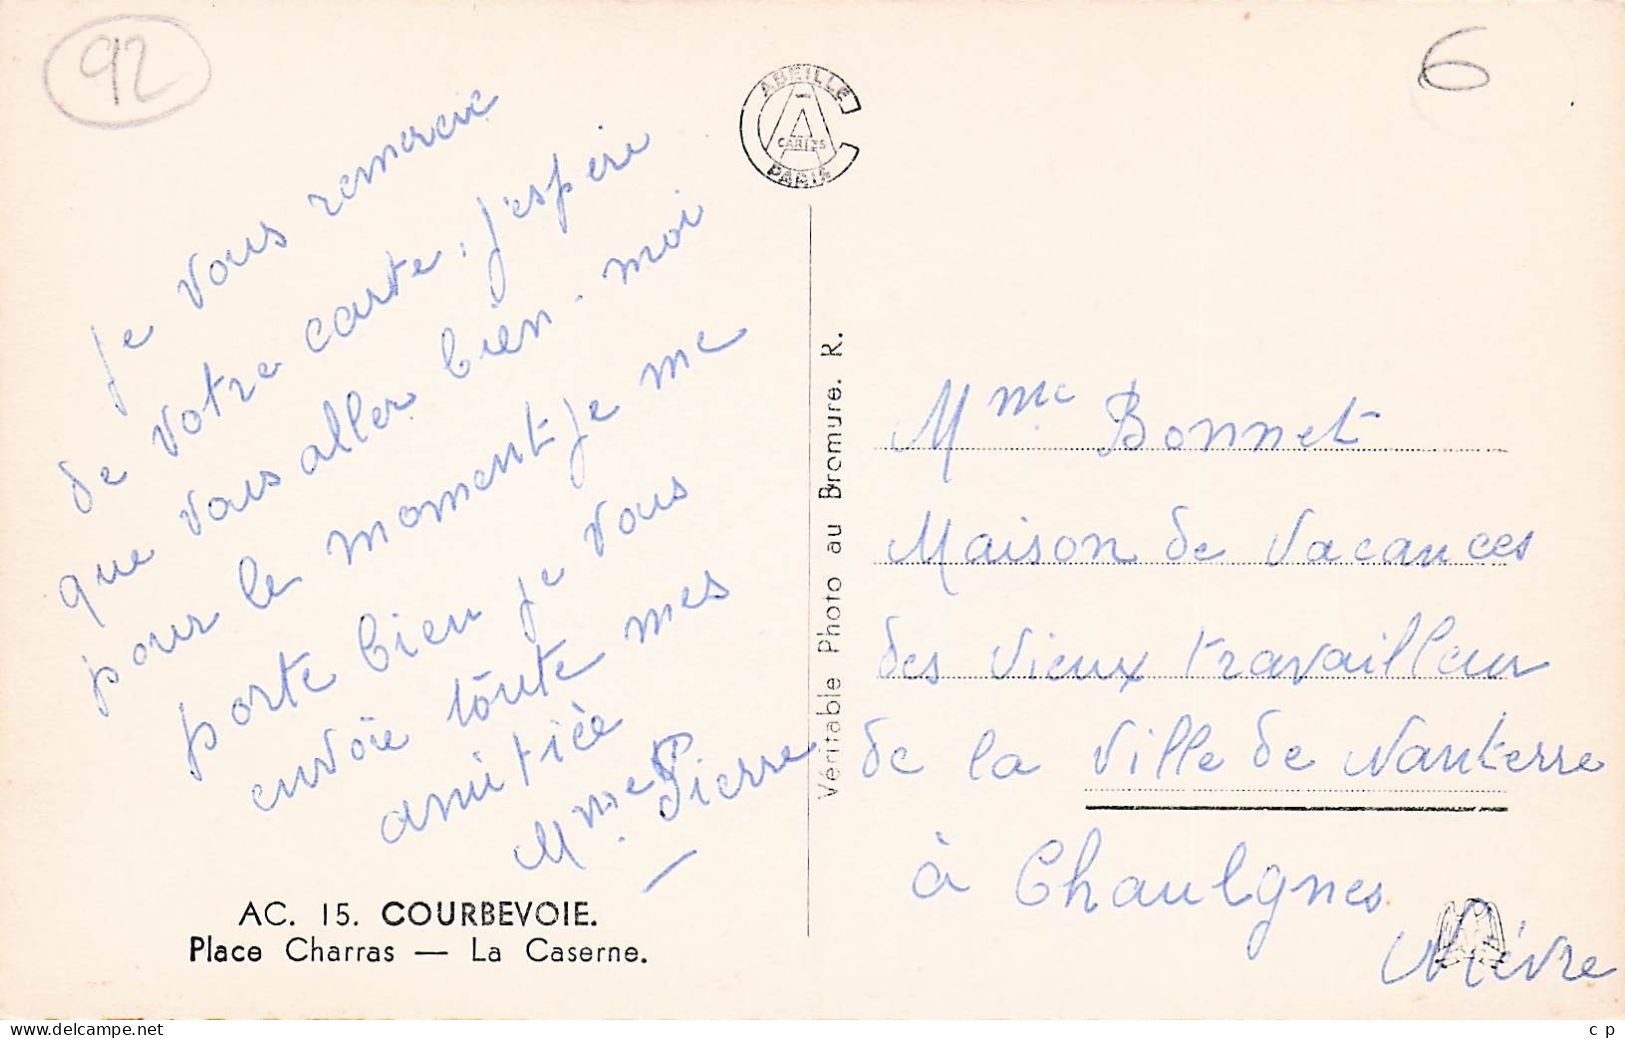 92
6
ABEILLE
A
CARTES
PARIS
Je vous remercie
de votre carte, j'espère
que vous aller bien. moi
pour le moment je me
porte bien je vous
envoie toute mes
amitiée
Mme Pierre
AC. 15. COURBEVOIE.
Place Charras — La Caserne.
Véritable Photo au Bromure. R.
Mme Bonnet
Maison de Vacances
des Vieux travailleur
de la Ville de Nanterre
à Chaulgnes
Nièvre
www.delcampe.net
c p